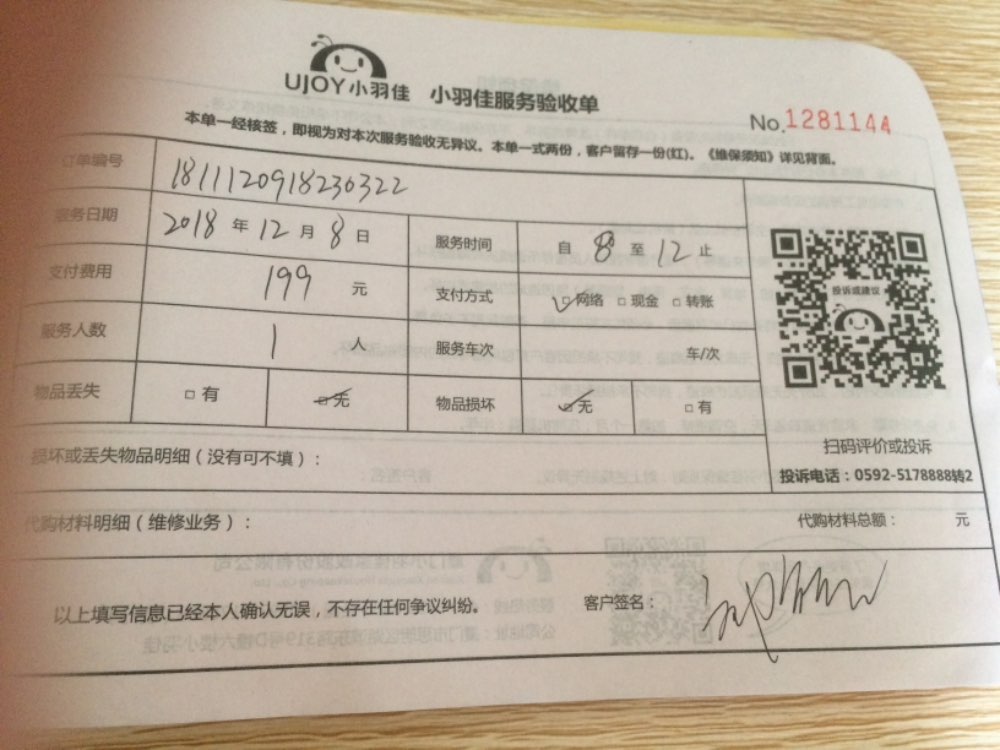 UJOY小羽佳 小羽佳服务验收单
No.1281144
本单一经核签，即视为对本次服务验收无异议。本单一式两份，客户留存一份(红)。《维保须知》详见背面。
订单编号 181112091823​0322
服务日期 2018 年 12 月 8 日 服务时间 自 8 至 12 止
支付费用 199 元 支付方式 □网络 □现金 □转账
服务人数 1 人 服务车次 车/次
物品丢失 □有 □无 物品损坏 □无 □有
投诉或建议
扫码评价或投诉
投诉电话：0592-5178888转2
损坏或丢失物品明细（没有可不填）：
代购材料明细（维修业务）： 代购材料总额： 元
以上填写信息已经本人确认无误，不存在任何争议纠纷。 客户签名：